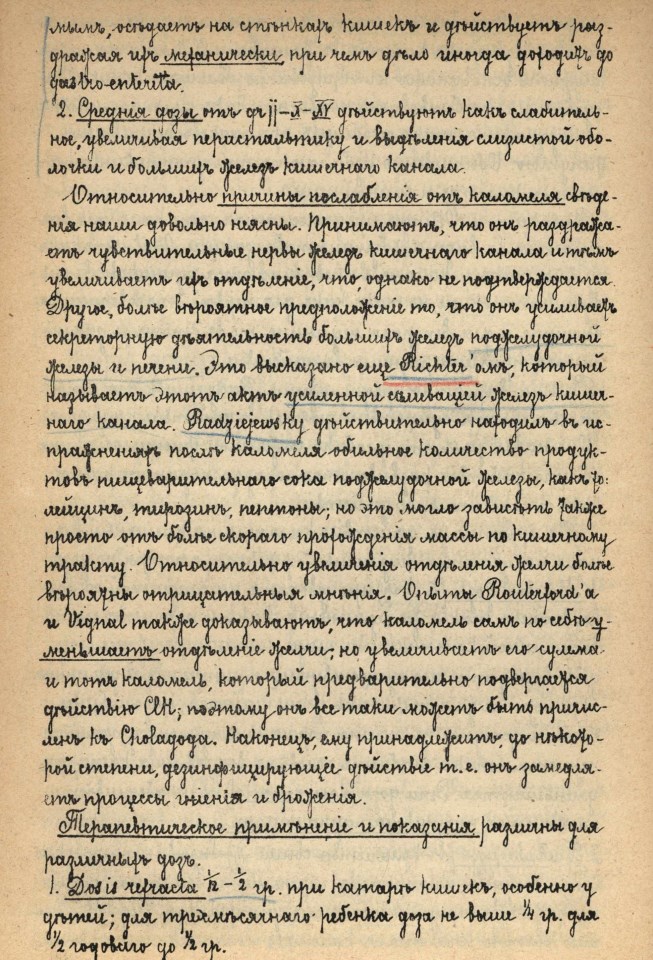 мымъ, осѣдаетъ на стѣнкахъ кишекъ и дѣйствуетъ раз-
дражая ихъ механически, при чемъ дѣло иногда доходитъ до
gastro-enterita.
2. Среднія дозы отъ gr jj–X–XV дѣйствуютъ какъ слабитель-
ное, увеличивая перистальтику и выдѣленія слизистой обо-
лочки и большихъ железъ кишечнаго канала.
Относительно причины послабленія отъ каломеля свѣде-
нія наши довольно неясны. Принимаютъ, что онъ раздража-
етъ чувствительные нервы железъ кишечнаго канала и тѣмъ
увеличиваетъ ихъ отдѣленіе, что, однако не подтверждается.
Другое, болѣе вѣроятное предположеніе то, что онъ усиливаетъ
секреторную дѣятельность большихъ железъ поджелудочной
железы и печени. Это высказано еще Richter'омъ, который
называетъ этотъ актъ усиленной саливаціей железъ кишеч-
наго канала. Radziejewsky дѣйствительно находилъ въ ис-
пражненіяхъ послѣ каломеля обильное количество продук-
товъ пищеварительнаго сока поджелудочной железы, какъ то:
лейцинъ, тирозинъ, пептоны; но это могло зависѣть также
просто отъ болѣе скораго прохожденія массы по кишечному
тракту. Относительно увеличенія отдѣленія желчи болѣе
вѣроятны отрицательныя мнѣнія. Опыты Routerford'a
и Vignal также доказываютъ, что каломель самъ по себѣ у-
меньшаетъ отдѣленіе желчи; но увеличиваетъ его сулема
и тотъ каломель, который предварительно подвергается
дѣйствію ClH; поэтому онъ все таки можетъ быть причис-
ленъ къ Cholagoga. Наконецъ, ему принадлежитъ, до нѣкото-
рой степени, дезинфицирующее дѣйствіе т.е. онъ замедля-
етъ процессы гніенія и броженія.
Терапевтическое примѣненіе и показанія различны для
различныхъ дозъ.
1. Dosis refracta 1/12 – 1/2 гр. при катаррѣ кишекъ, особенно у
дѣтей; для трехмѣсячнаго ребенка доза не выше 1/4 гр. для
1/2 годоваго до 1/2 гр.